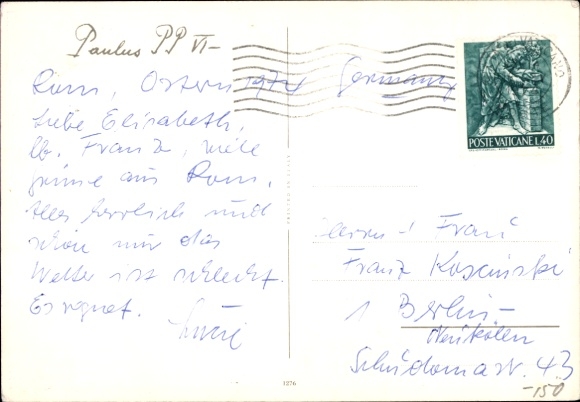 Paulus PP VI
Rom, Ostern 1974
Liebe Elisabeth,
lb. Franz, viele
grüsse aus Rom.
Alles herrlich und
schön nur das
Wetter ist schlecht.
Es regnet.
Germany
POSTE VATICANE L.40
Herrn + Frau
Franz Koscinski
1 Berlin-
Neukölln
43
1276
-150